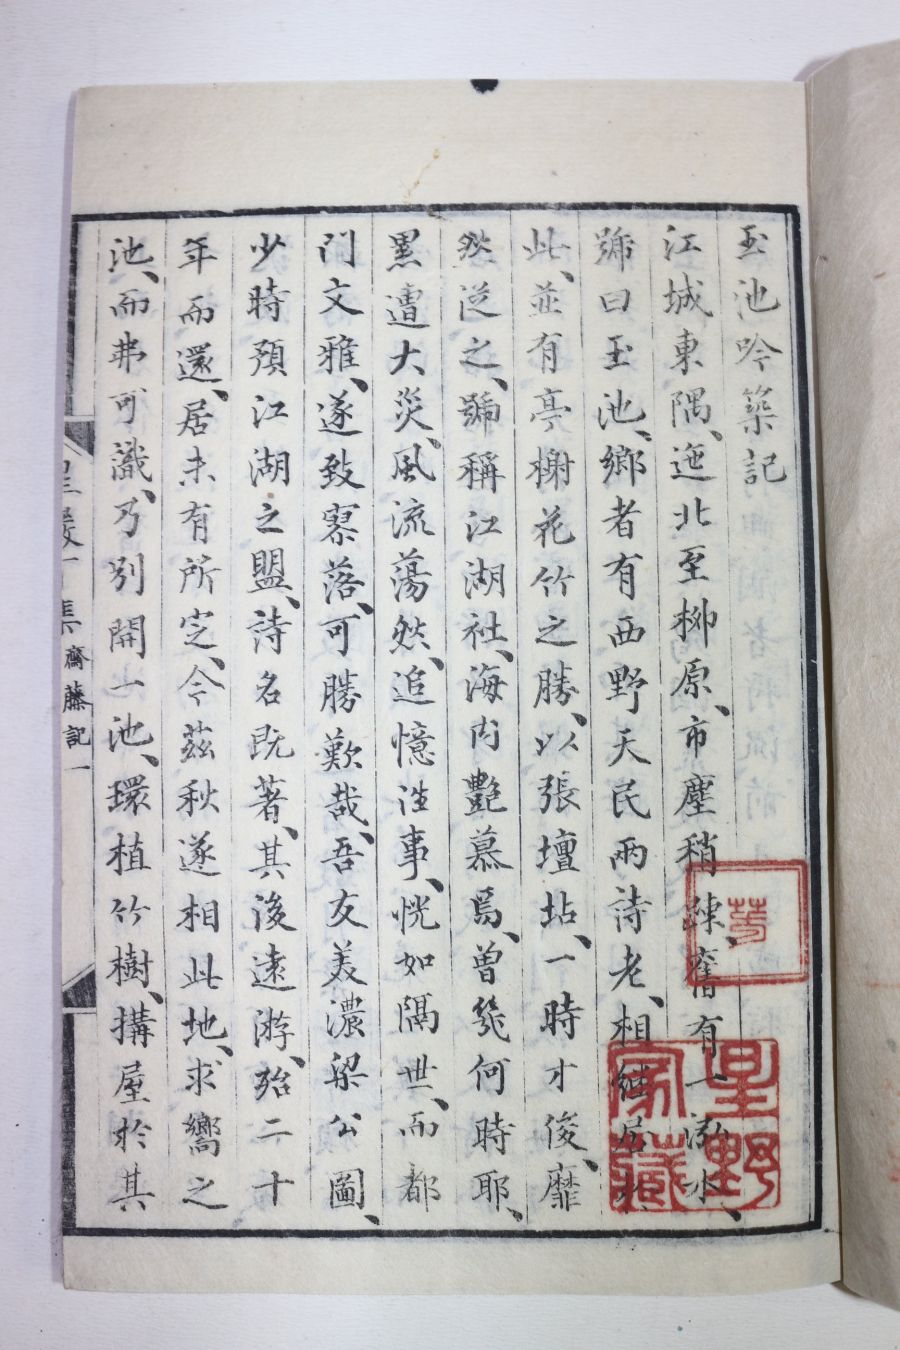 玉池吟築記
江城東隅、迤北至柳原、市塵稍踈、舊有一泓水、
號曰玉池、鄉者有西野天民兩詩老、相継居於
此、並有亭榭花竹之勝、以張壇坫、一時才俊、靡
然從之、號稱江湖社、海内艷慕焉、曾幾何時耶、
累遭大災、風流蕩然、追憶往事、恍如隔世、而都
門文雅、遂致寥落、可勝歎哉、吾友美濃梁公圖、
少時預江湖之盟、詩名既著、其後遠游、殆二十
年而還、居未有所定、今茲秋遂相此地、求嚮之
池、而弗可識、乃別開一池、環植竹樹、搆屋於其
集 齋藤記 一
星野家藏